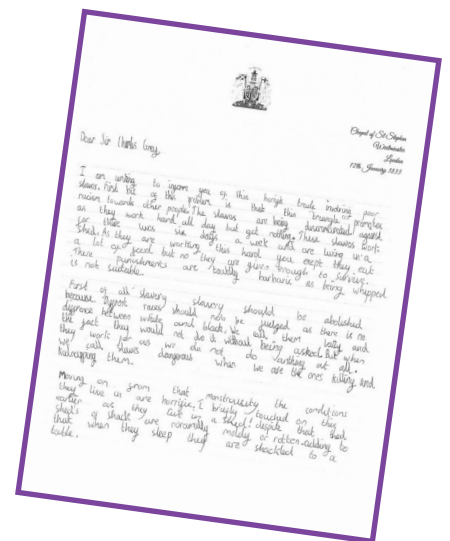 Chapel of St Stephen
Westminster
London
12th January 1833
Dear Sir Charles Grey
I am writing to inform you of this horrific trade involving poor
slaves. First bit of this problem is that this triangle promotes
racism towards other people. The slaves are being discriminated against
as they work hard all day but get nothing. These slaves work
for three lives six days a week and are living in a
shed. As they are working this hard you expect they eat
a lot of food but no they are given enough to survive.
There punishments are barbaric as being whipped
is not suitable.
First of all slavery slavery should be abolished
because different races should not be judged as there is no
difference between white and black. We call them lazy and
the fact they would not do it without being asked. But when
they work for us we do not do anything at all.
We call slaves dangerous when we are the ones killing and
kidnapping them.
Moving on from that monstruosity the conditions
they live in are horrific. I briefly touched on this
earlier but they live in a shed! despite that their
shed's of shack are noramally moldy or rotten adding to
that when they sleep they are shackled to a
table.